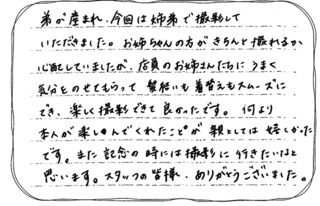 弟が産まれ、今回は姉弟で撮影して
いただきました。お姉ちゃんの方がきちんと撮れるか
心配していましたが、店員のお姉さんたちにうまく
気分をのせてもらって髪結いも着替えもスムーズに
でき、楽しく撮影できて良かったです。何より
本人が楽しんでくれたことが親としては嬉しかった
です。また記念の時には撮影に行きたいなと
思います。スタッフの皆様、ありがとうございました。